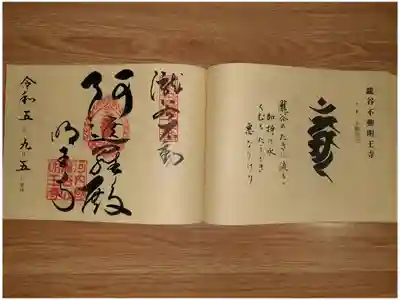 瀧谷不動明王寺
瀧谷のたきに流るゝ
加持の水
くむもたうとき
恵なりけり
瀧谷不動
阿遮羅殿
明王寺
令和五年九月五日